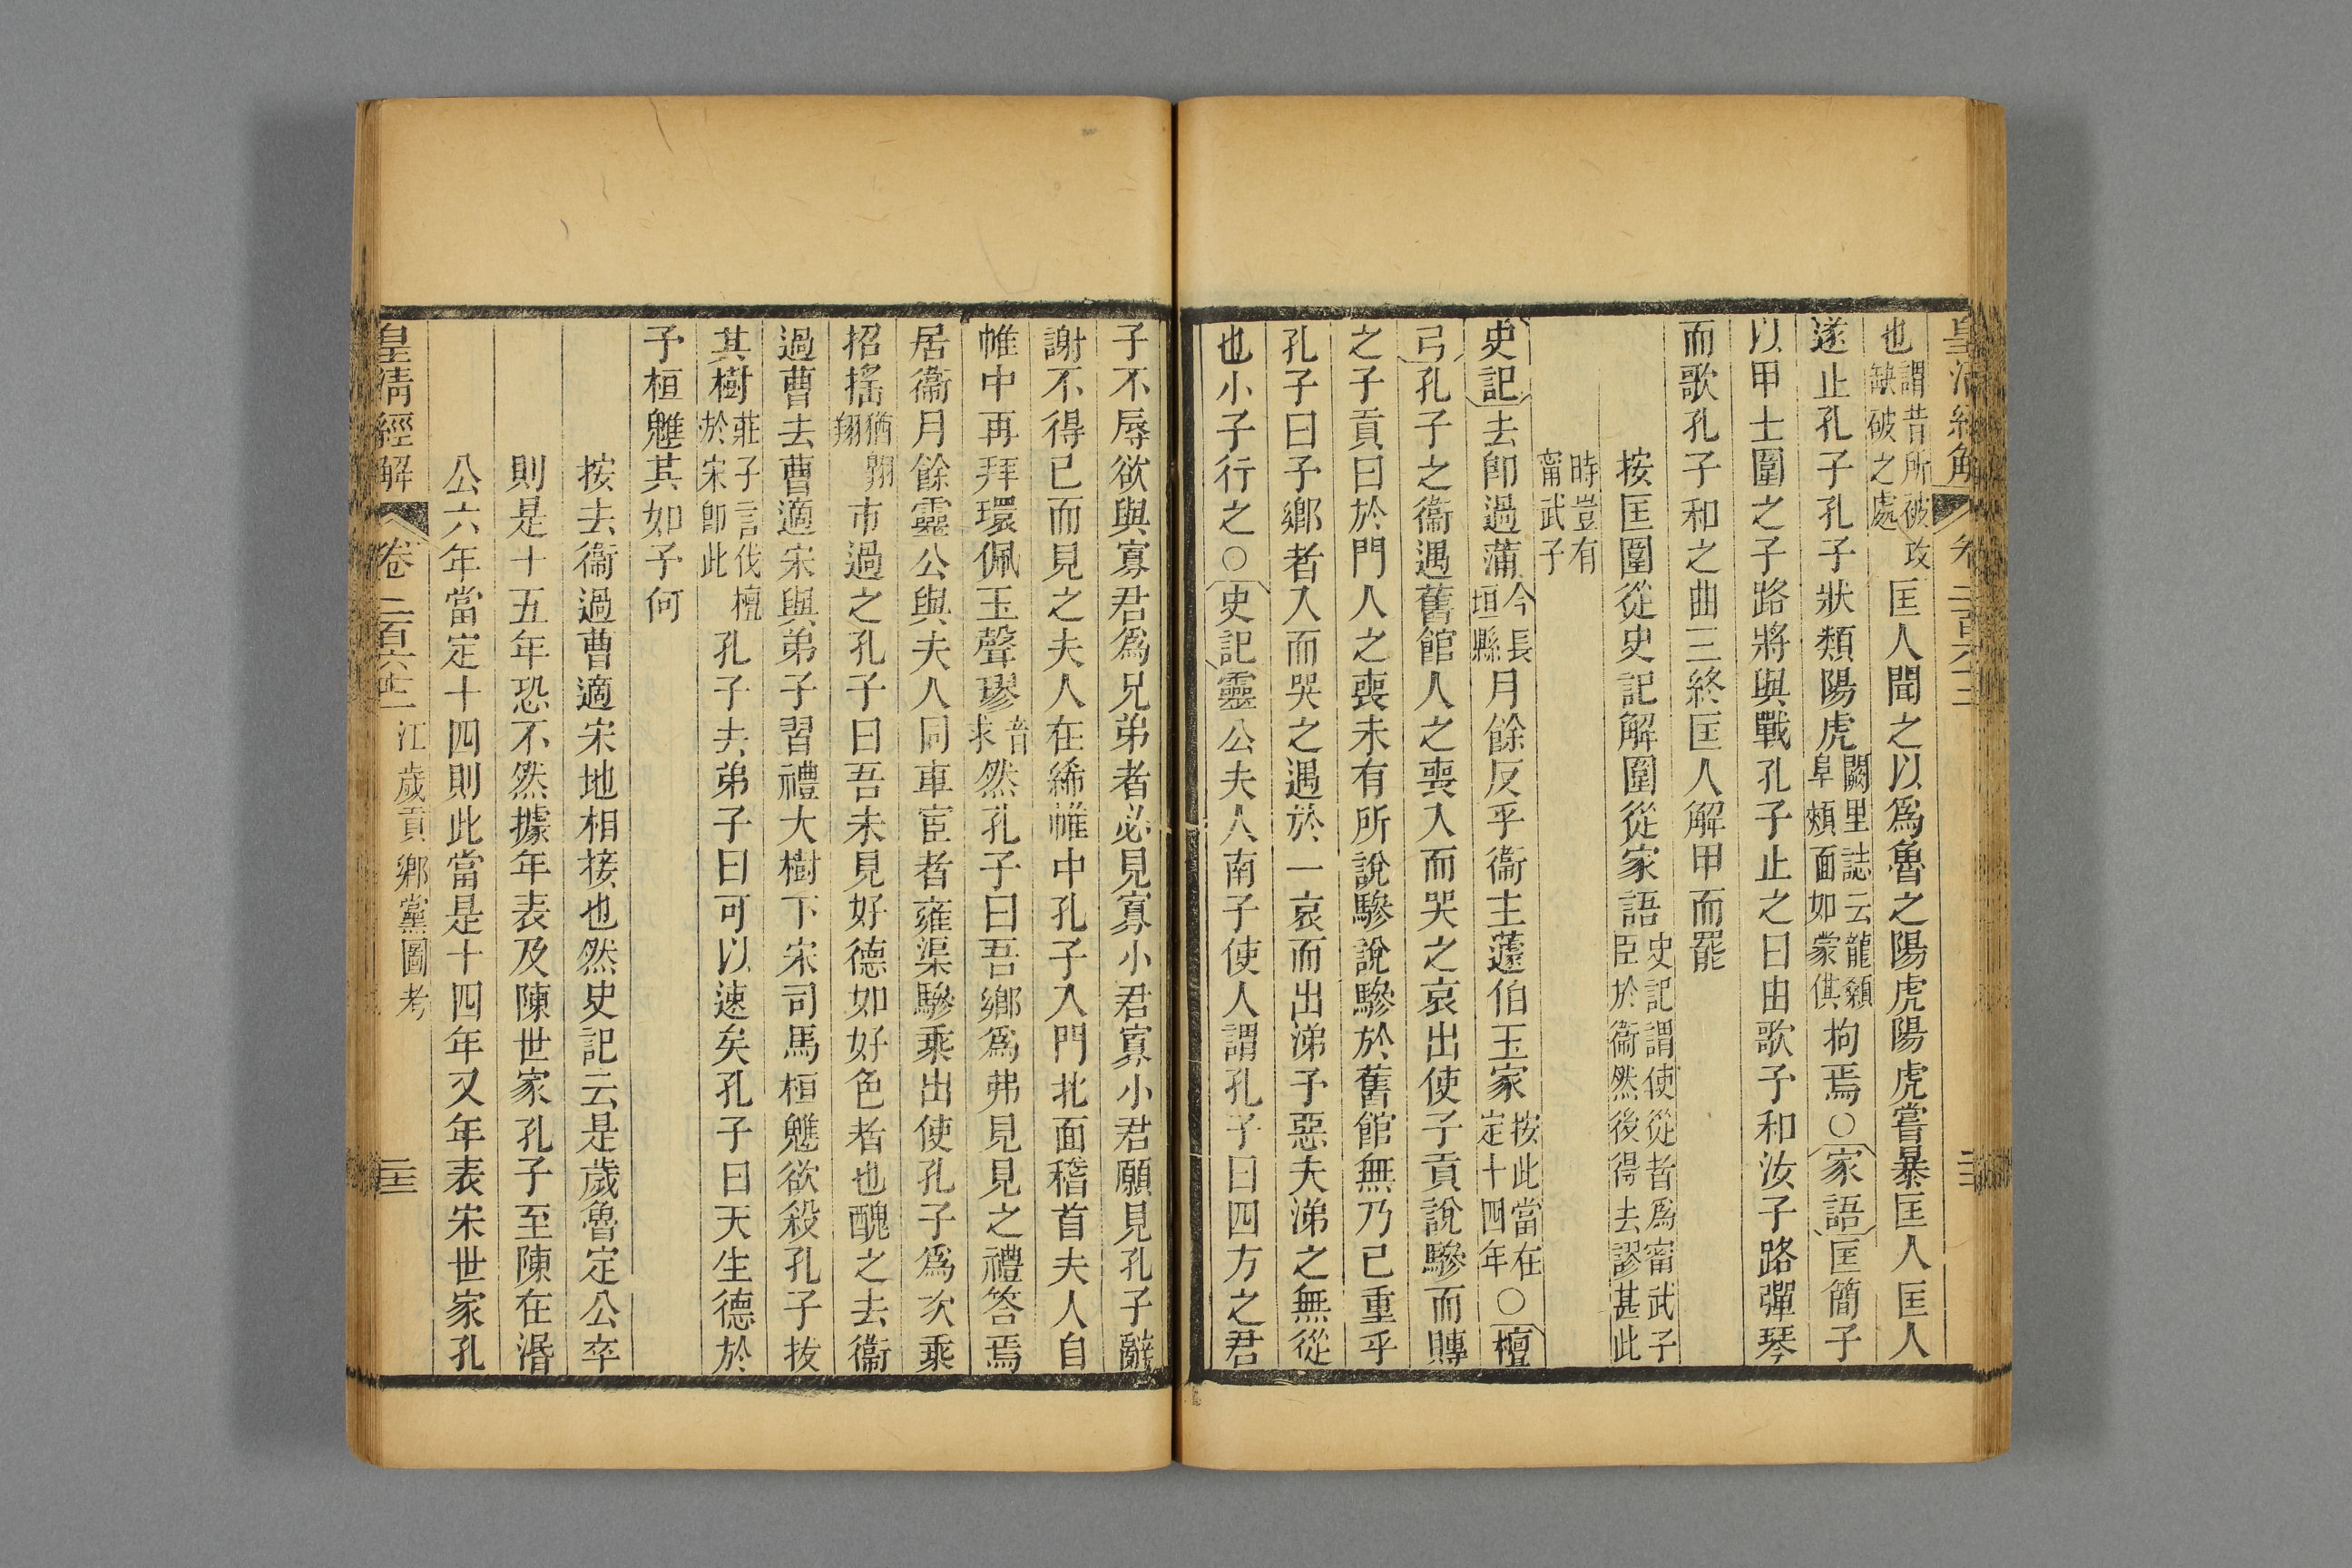 皇清經解 卷二百六十二
也謂昔所破攻缺破之處匡人聞之以爲魯之陽虎陽虎嘗暴匡人匡人
遂止孔子孔子狀類陽虎闕里誌云龍顙阜頰面如蒙倛拘焉○家語匡簡子
以甲士圍之子路將與戰孔子止之曰由歌予和汝子路彈琴
而歌孔子和之曲三終匡人解甲而罷
按匡圍從史記解圍從家語史記謂使從者爲甯武子臣於衞然後得去謬甚此
時豈有甯武子
史記去卽過蒲今長垣縣月餘反乎衞主蘧伯玉家按此當在定十四年○檀
弓孔子之衞遇舊館人之喪入而哭之哀出使子貢說驂而賻
之子貢曰於門人之喪未有所說驂說驂於舊館無乃已重乎
孔子曰予鄉者入而哭之遇於一哀而出涕予惡夫涕之無從
也小子行之○史記靈公夫人南子使人謂孔子曰四方之君
子不辱欲與寡君爲兄弟者必見寡小君寡小君願見孔子辭
謝不得已而見之夫人在絺帷中孔子入門北面稽首夫人自
帷中再拜環佩玉聲璆音求然孔子曰吾鄉爲弗見見之禮答焉
居衞月餘靈公與夫人同車宦者雍渠驂乘出使孔子爲次乘
招搖猶翱翔市過之孔子曰吾未見好德如好色者也醜之去衞
過曹去曹適宋與弟子習禮大樹下宋司馬桓魋欲殺孔子拔
其樹莊子言伐檀於宋卽此孔子去弟子曰可以速矣孔子曰天生德於
予桓魋其如予何
按去衞過曹適宋地相接也然史記云是歲魯定公卒
則是十五年恐不然據年表及陳世家孔子至陳在湣
公六年當定十四則此當是十四年又年表宋世家孔
皇清經解 卷二百六十二 江歲貢鄉黨圖考